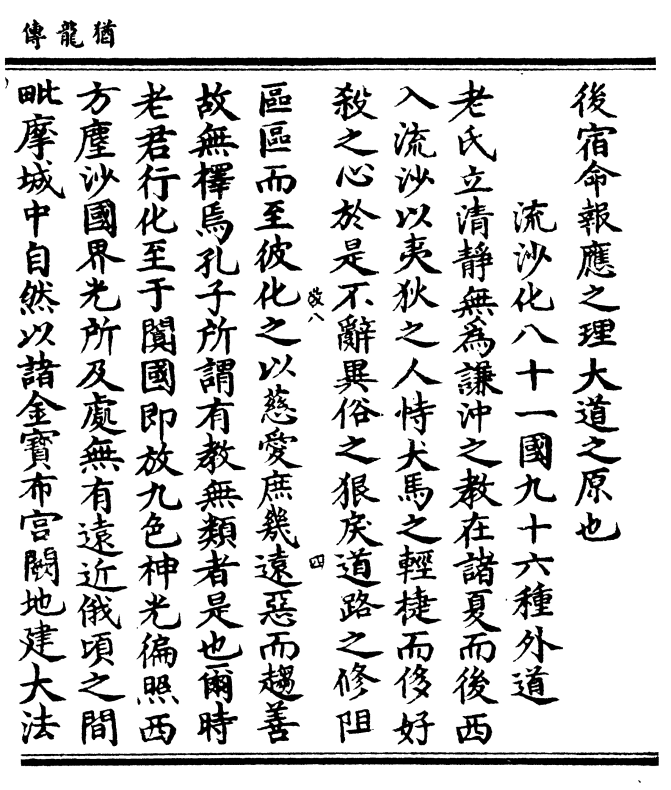 猶龍傳
後宿命報應之理大道之原也
流沙化八十一國九十六種外道
老氏立清靜無為謙沖之教在諸夏而後西
入流沙以夷狄之人恃犬馬之輕捷而侈好
殺之心於是不辭異俗之狠戾道路之修阻
改八
四
區區而至彼化之以慈愛庶幾遠惡而趨善
故無擇焉孔子所謂有教無類者是也爾時
老君行化至于闐國即放九色神光徧照西
方塵沙國界光所及處無有遠近俄頃之間
毗摩城中自然以諸金寶布宮闕地建大法